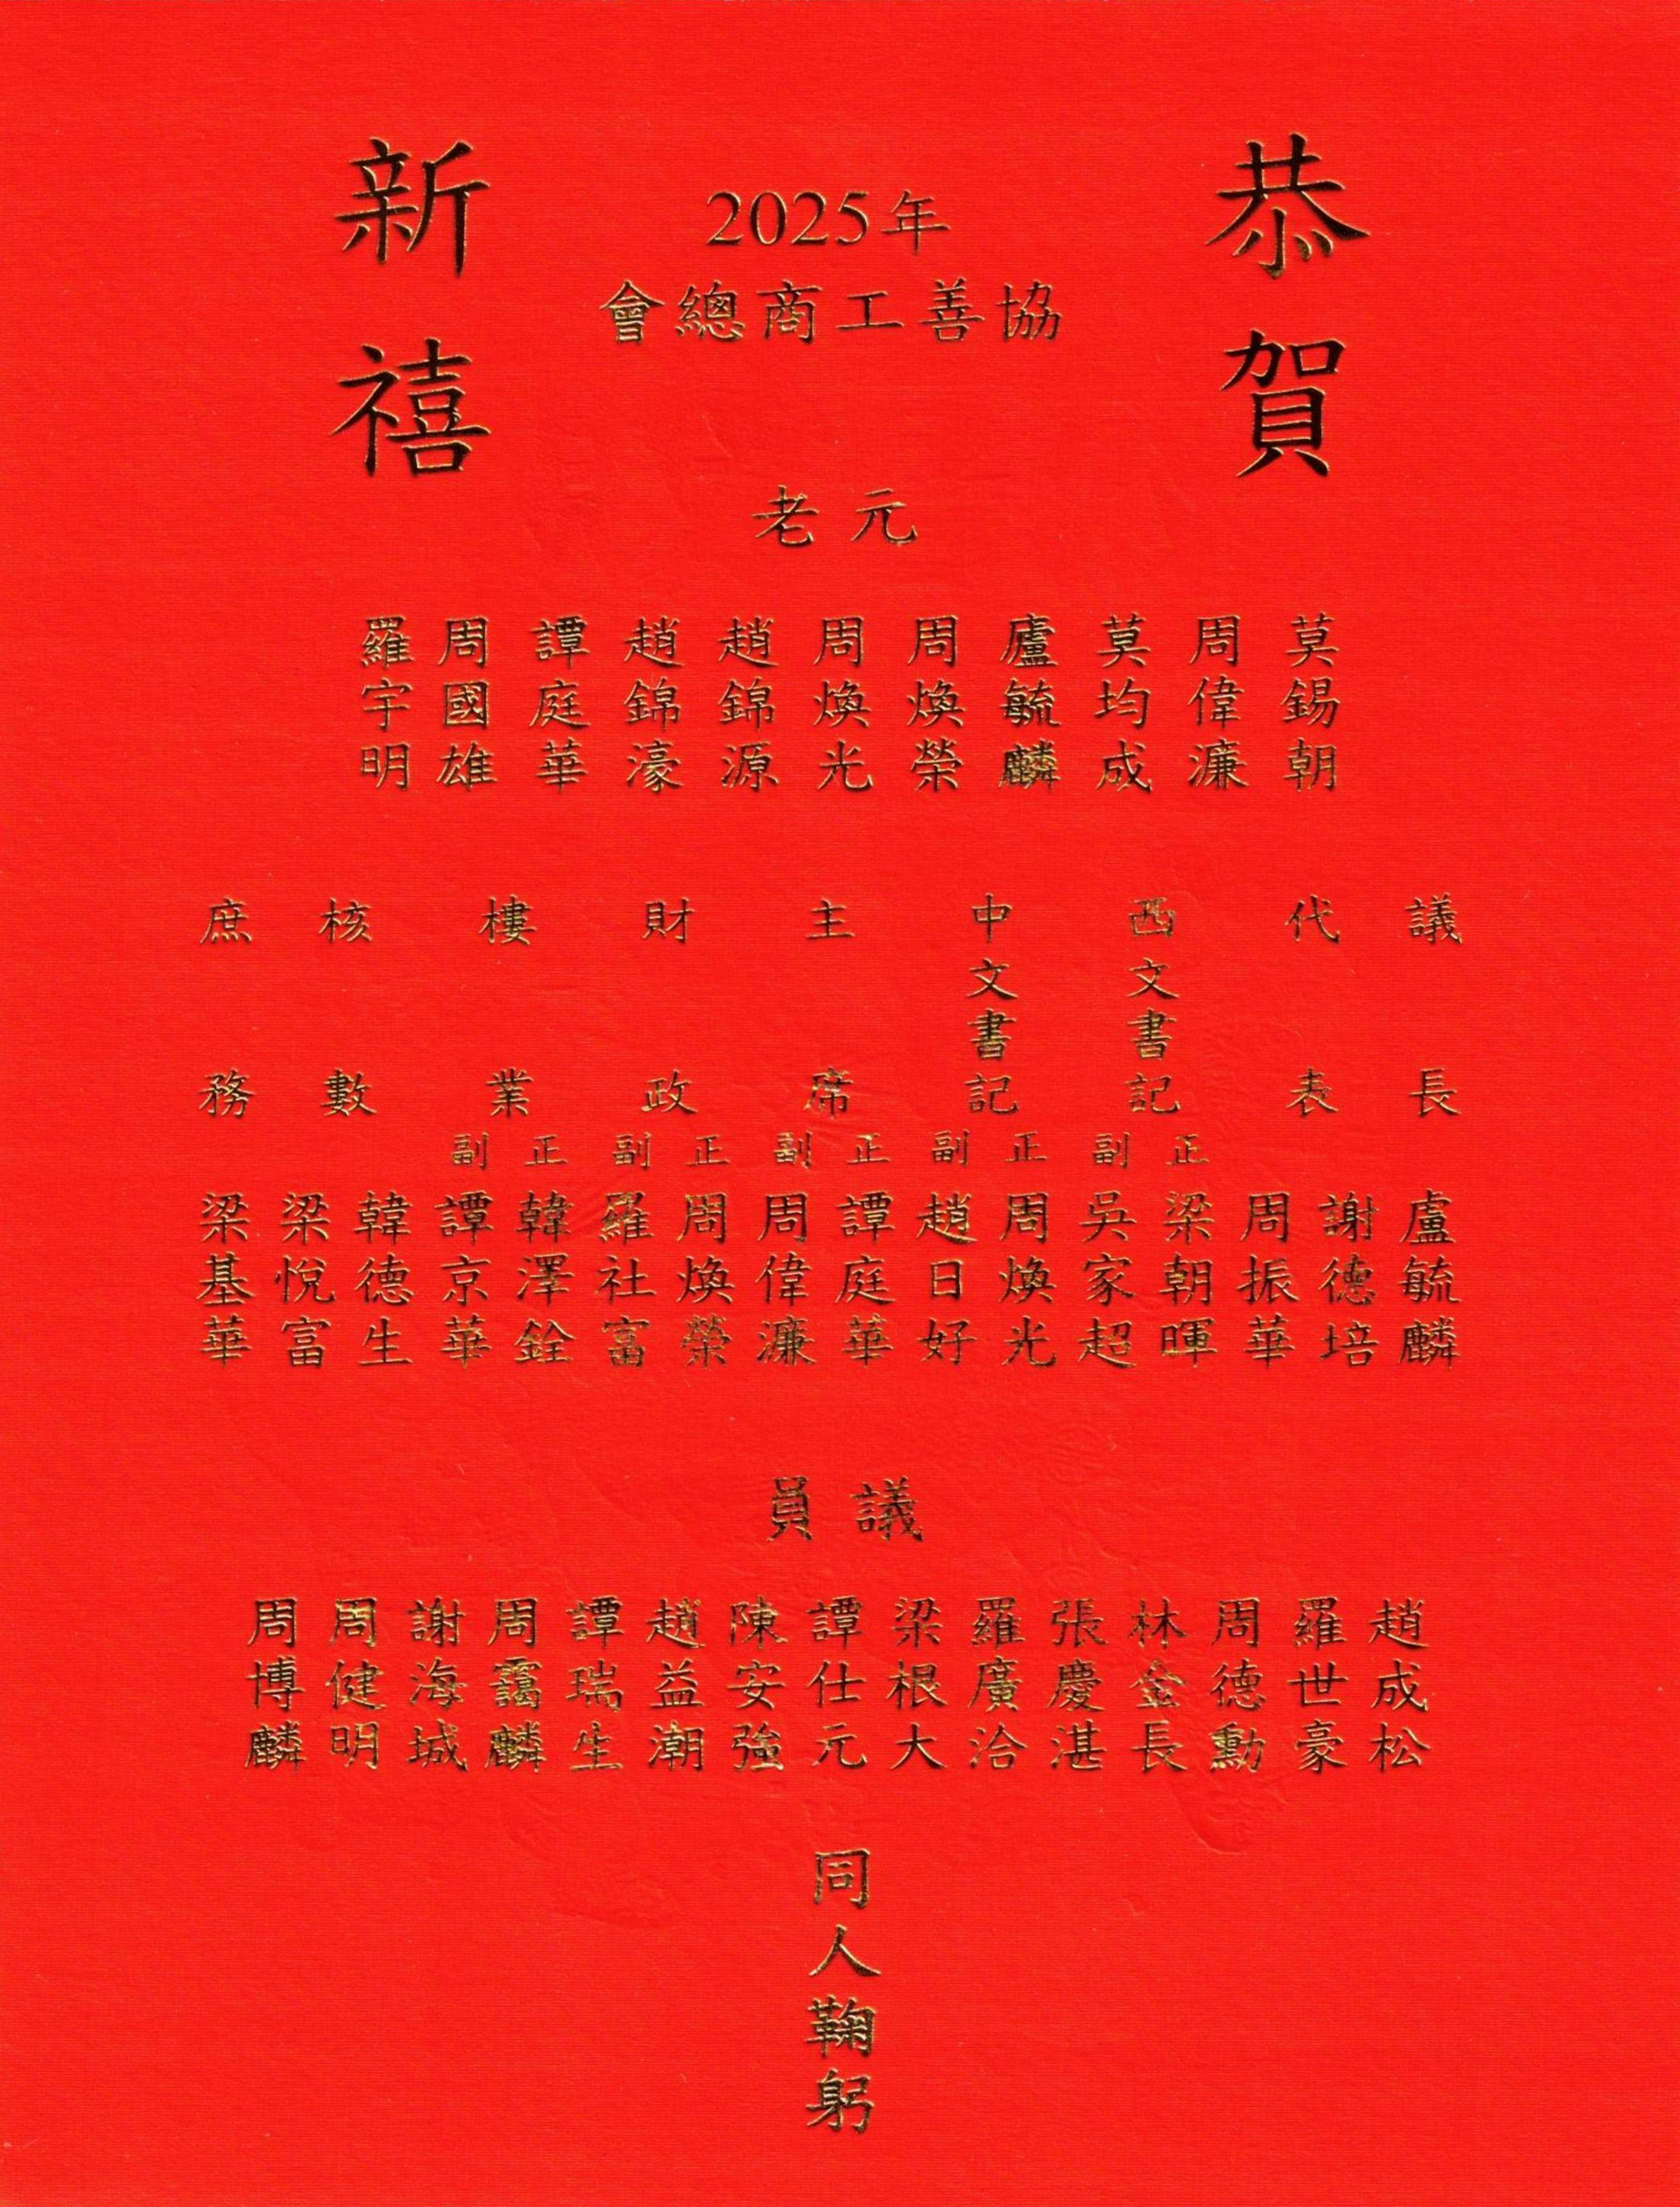 恭賀
新禧
2025年
協善工商總會
元老
莫錫朝
周偉濂
莫均成
廬毓麟
周煥榮
周煥光
趙錦源
趙錦濠
譚庭華
周國雄
羅宇明
議長
代表
西文書記
中文書記
主席
財政
樓業
核數
庶務
正
副
正
副
正
副
正
副
正
副
盧毓麟
謝德培
周振華
梁朝暉
吳家超
周煥光
趙日好
譚庭華
周偉濂
周煥榮
羅社富
韓澤銓
譚京華
韓德生
梁悅富
梁基華
議員
趙成松
羅世豪
周德勳
林金長
張慶湛
羅廣洽
梁根大
譚仕元
陳安強
趙益潮
譚瑞生
周靄麟
謝海城
周健明
周博麟
同人鞠躬